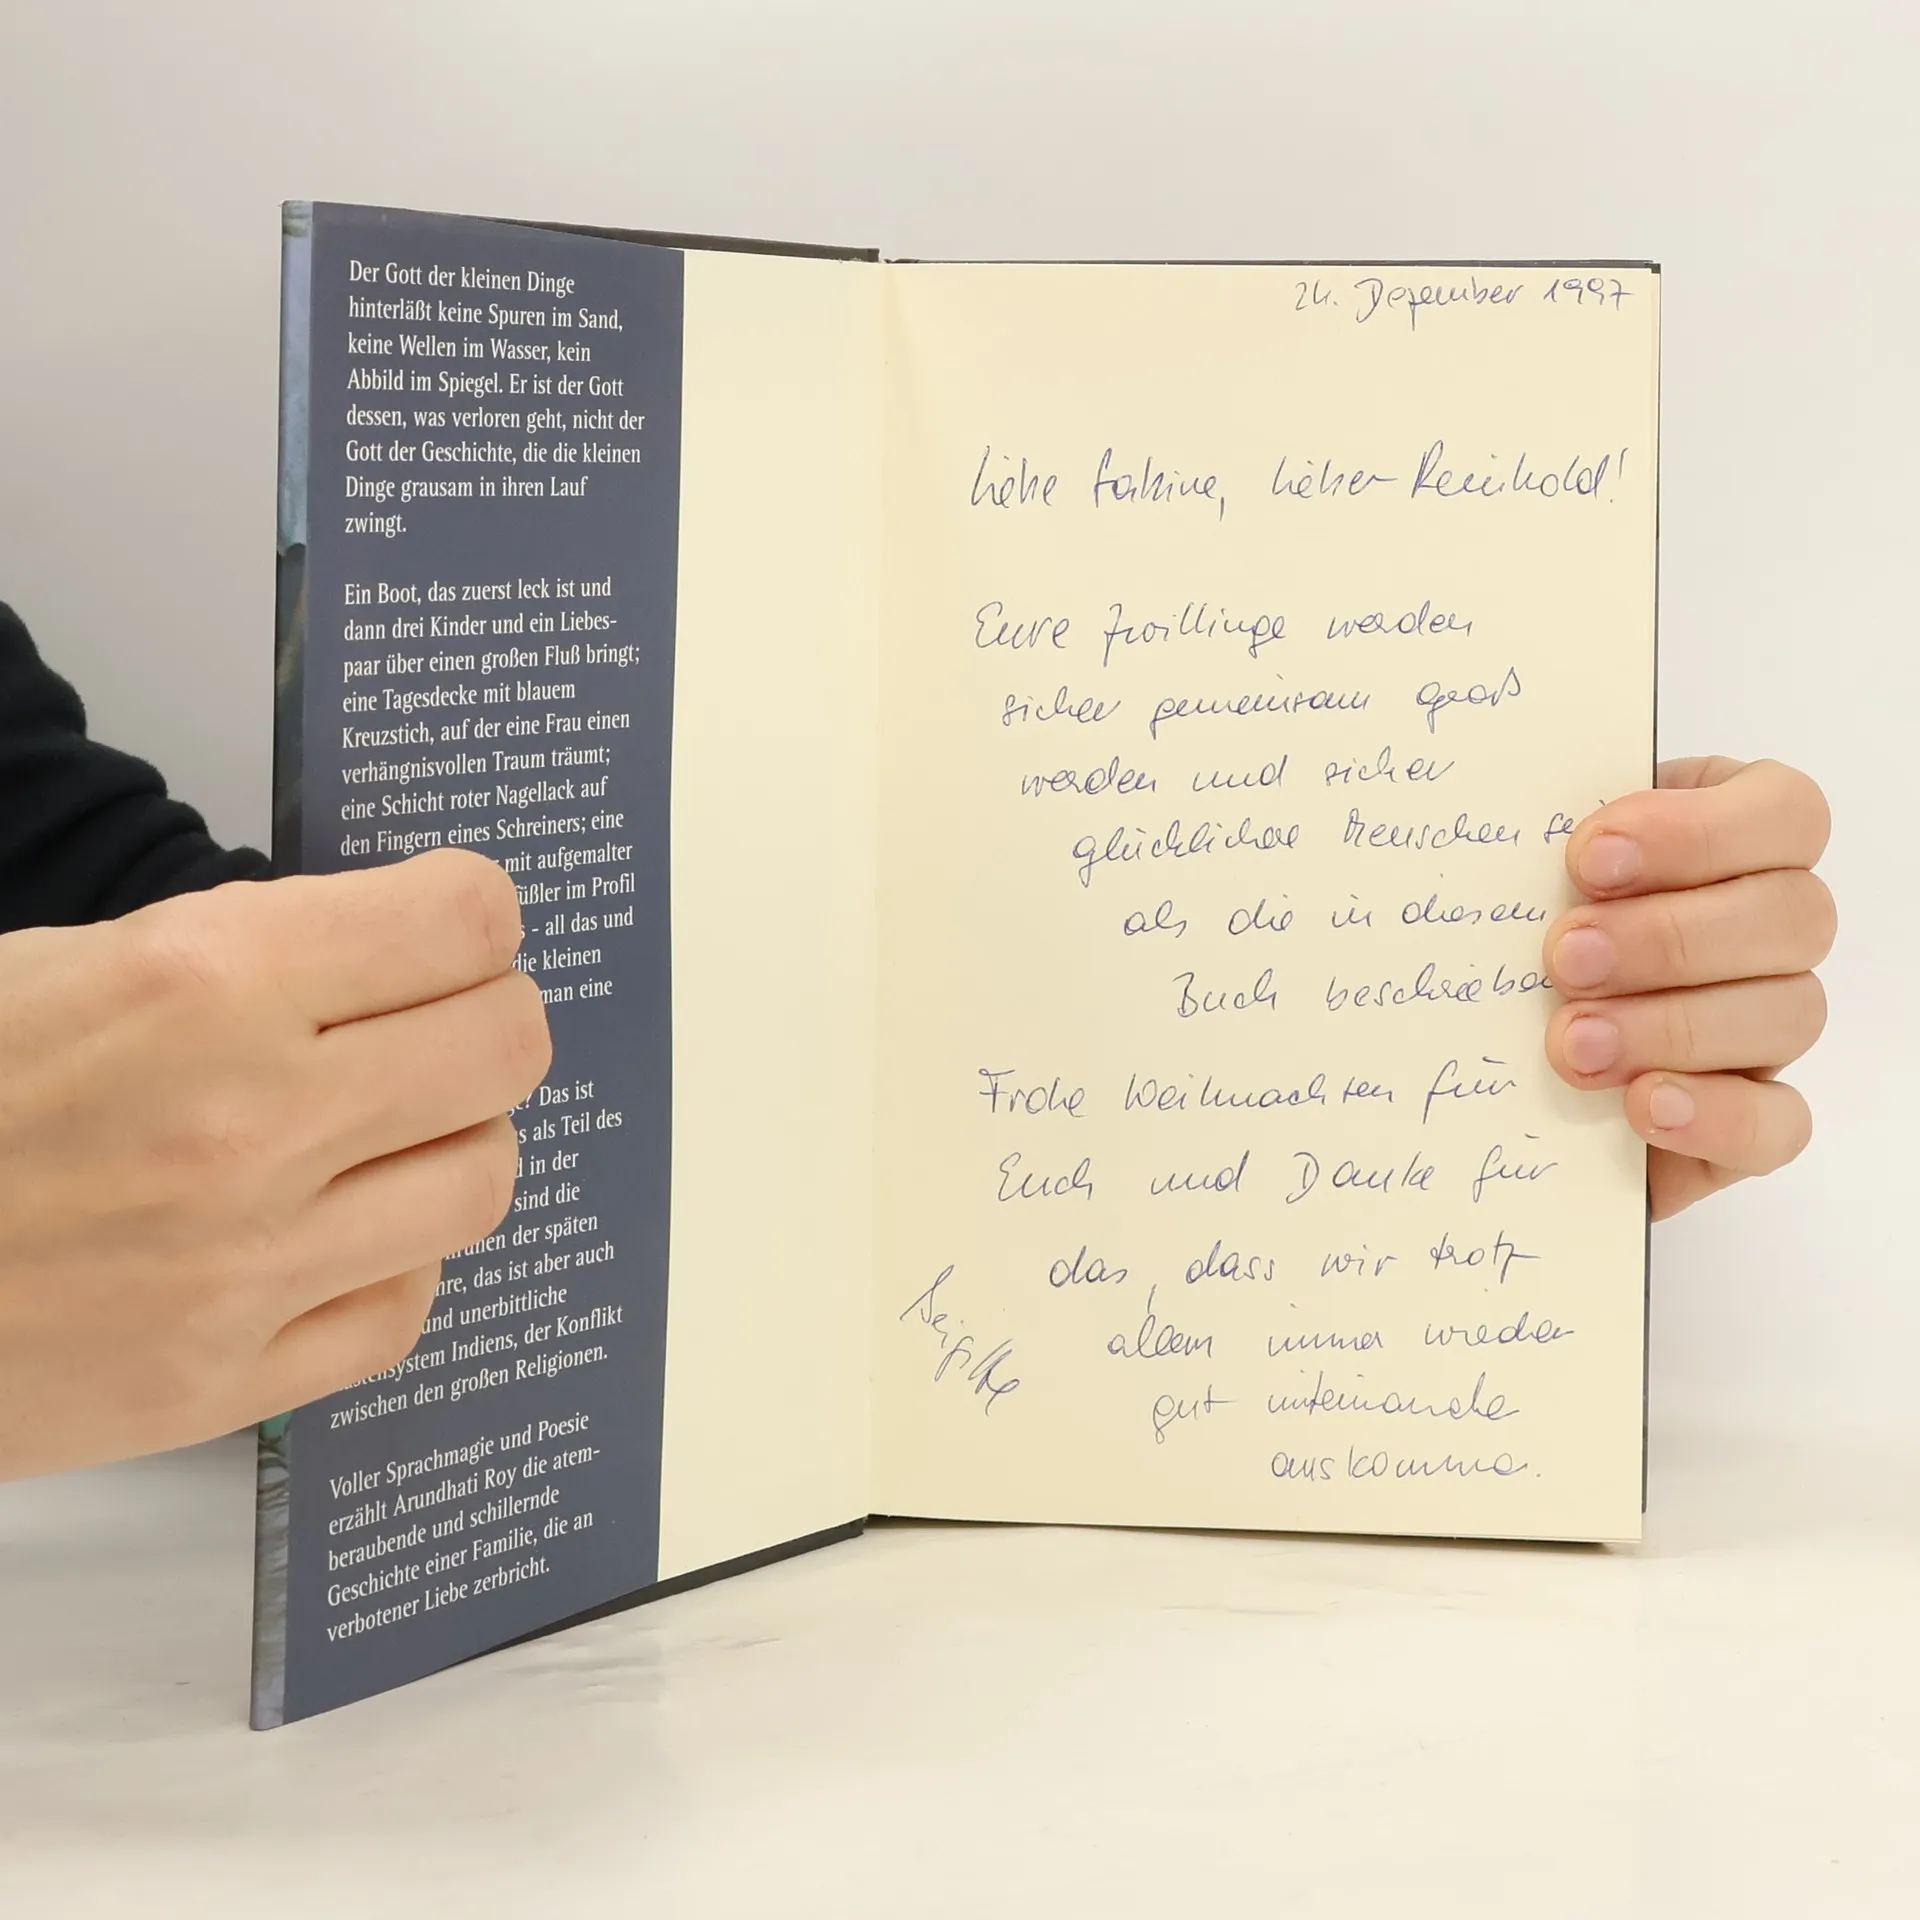 Der Gott der kleinen Dinge
hinterläßt keine Spuren im Sand,
keine Wellen im Wasser, kein
Abbild im Spiegel. Er ist der Gott
dessen, was verloren geht, nicht der
Gott der Geschichte, die die kleinen
Dinge grausam in ihren Lauf
zwingt.
Ein Boot, das zuerst leck ist und
dann drei Kinder und ein Liebes-
paar über einen großen Fluß bringt;
eine Tagesdecke mit blauem
Kreuzstich, auf der eine Frau einen
verhängnisvollen Traum träumt;
eine Schicht roter Nagellack auf
den Fingern eines Schreiners; eine
mit aufgemalter
im Profil
- all das und
die kleinen
man eine
Das ist
als Teil des
in der
sind die
der späten
das ist aber auch
und unerbittliche
Indiens, der Konflikt
zwischen den großen Religionen.
Voller Sprachmagie und Poesie
erzählt Arundhati Roy die atem-
beraubende und schillernde
Geschichte einer Familie, die an
verbotener Liebe zerbricht.
24. Dezember 1997
Liebe Sabine, lieber Reinhold!
Eure Zwillinge werden
sicher gemeinsam groß
werden und sicher
glücklichere Menschen
als die in diesem
Buch
Frohe Weihnachten für
Euch und Danke für
das, dass wir trotz
allem immer wieder
gut